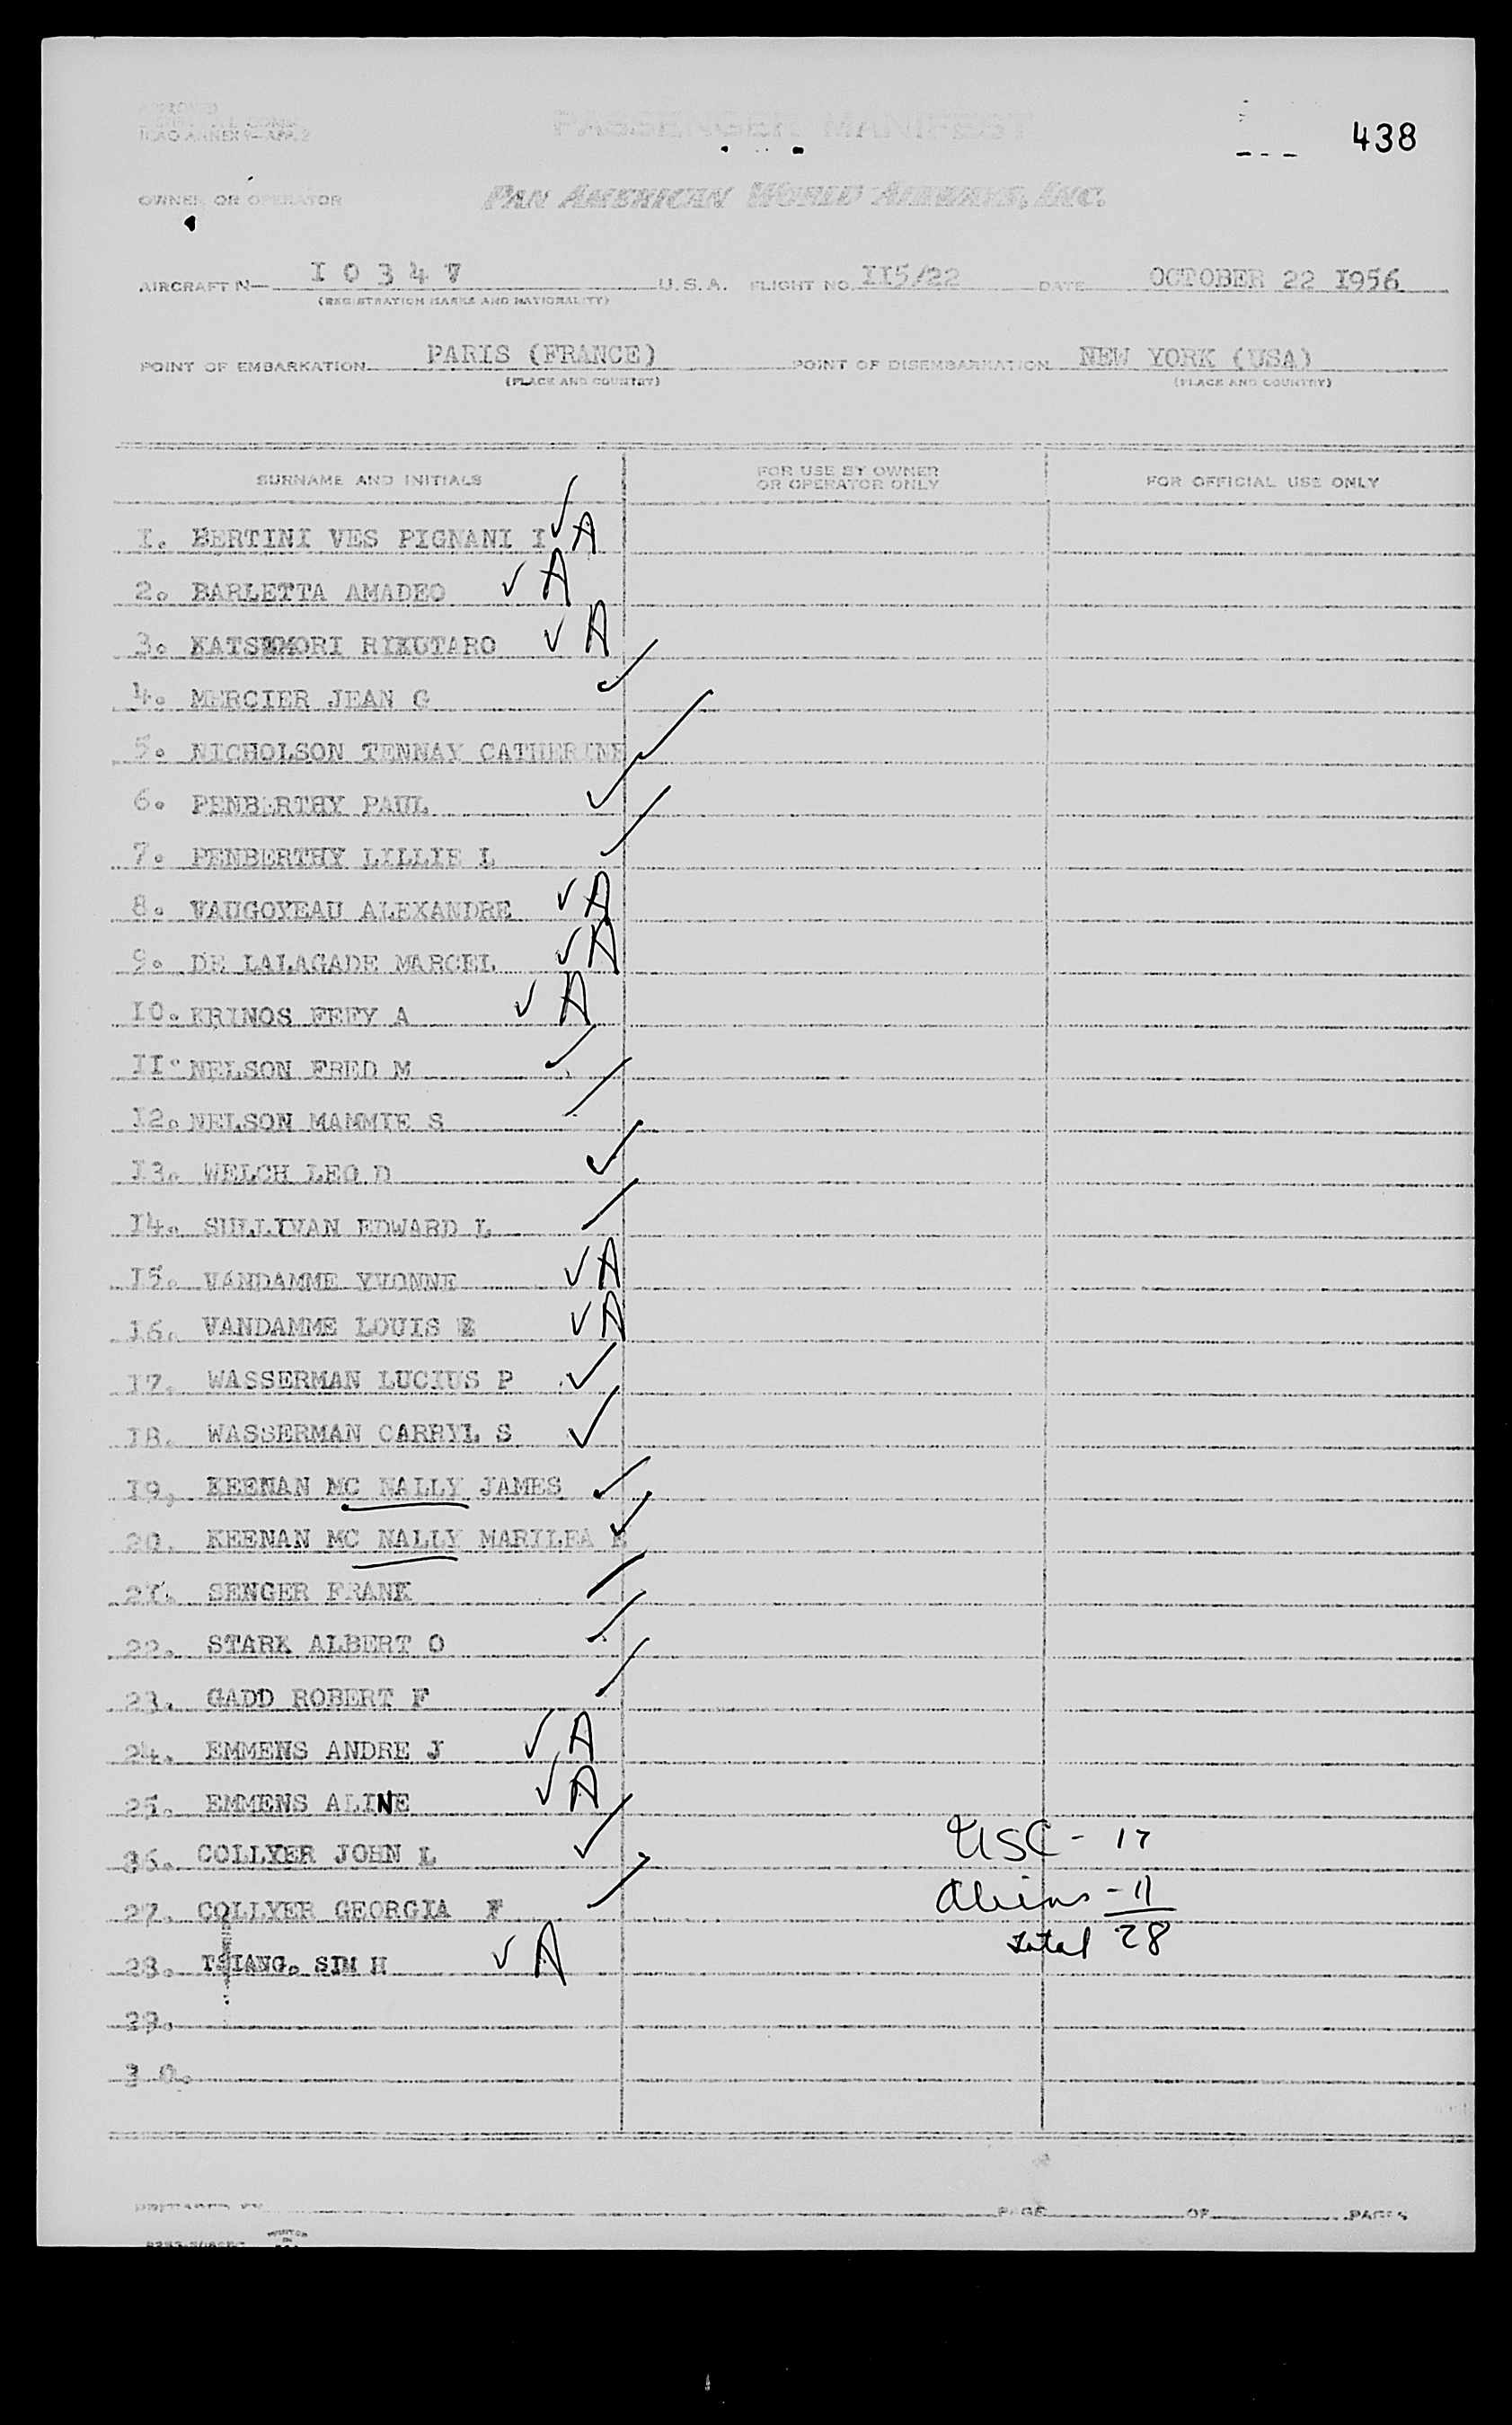 438
ICAO ANNEX 9—APP. 2
PASSENGER MANIFEST
OWNER OR OPERATOR PAN AMERICAN WORLD AIRWAYS, INC.
AIRCRAFT N— I 0 3 4 V U. S. A. FLIGHT NO. II5/22 DATE OCTOBER 22 I956
(REGISTRATION MARKS AND NATIONALITY)
POINT OF EMBARKATION PARIS (FRANCE) POINT OF DISEMBARKATION NEW YORK (USA)
(PLACE AND COUNTRY) (PLACE AND COUNTRY)
SURNAME AND INITIALS FOR USE BY OWNER OR OPERATOR ONLY FOR OFFICIAL USE ONLY
I. BERTINI VES PIGNANI I ✓ A
2. BARLETTA AMADEO ✓ A
3. RIKUTARO ✓ A
4. MERCIER JEAN G ✓
5. NICHOLSON TENNAY CATHERINE ✓
6. PENBERTHY PAUL ✓
7. PENBERTHY LILLIE L ✓
8. VAUGOYEAU ALEXANDRE ✓ A
9. DE LALAGADE MARCEL ✓ A
I0. KRINOS FEFY A ✓ A
II. NELSON FRED M ✓
I2. NELSON MAMMIE S ✓
I3. WELCH LEO D ✓
I4. SULLIVAN EDWARD L ✓
I5. VANDAMME YVONNE ✓ A
I6. VANDAMME LOUIS E ✓ A
I7. WASSERMAN LUCIUS P ✓
I8. WASSERMAN CARRYL S ✓
I9, KEENAN MC NALLY JAMES ✓
20. KEENAN MC NALLY MARILEA E ✓
2I. SENGER FRANK ✓
22. STARK ALBERT O ✓
23. GADD ROBERT F ✓
24. EMMENS ANDRE J ✓ A
25. EMMENS ALINE ✓ A
26. COLLYER JOHN L ✓ USC - 17
27. COLLYER GEORGIA F ✓ Aliens - 11
28. TSIANG. SIM H ✓ A total 28
29.
3 0.
PREPARED BY PAGE OF PAGES